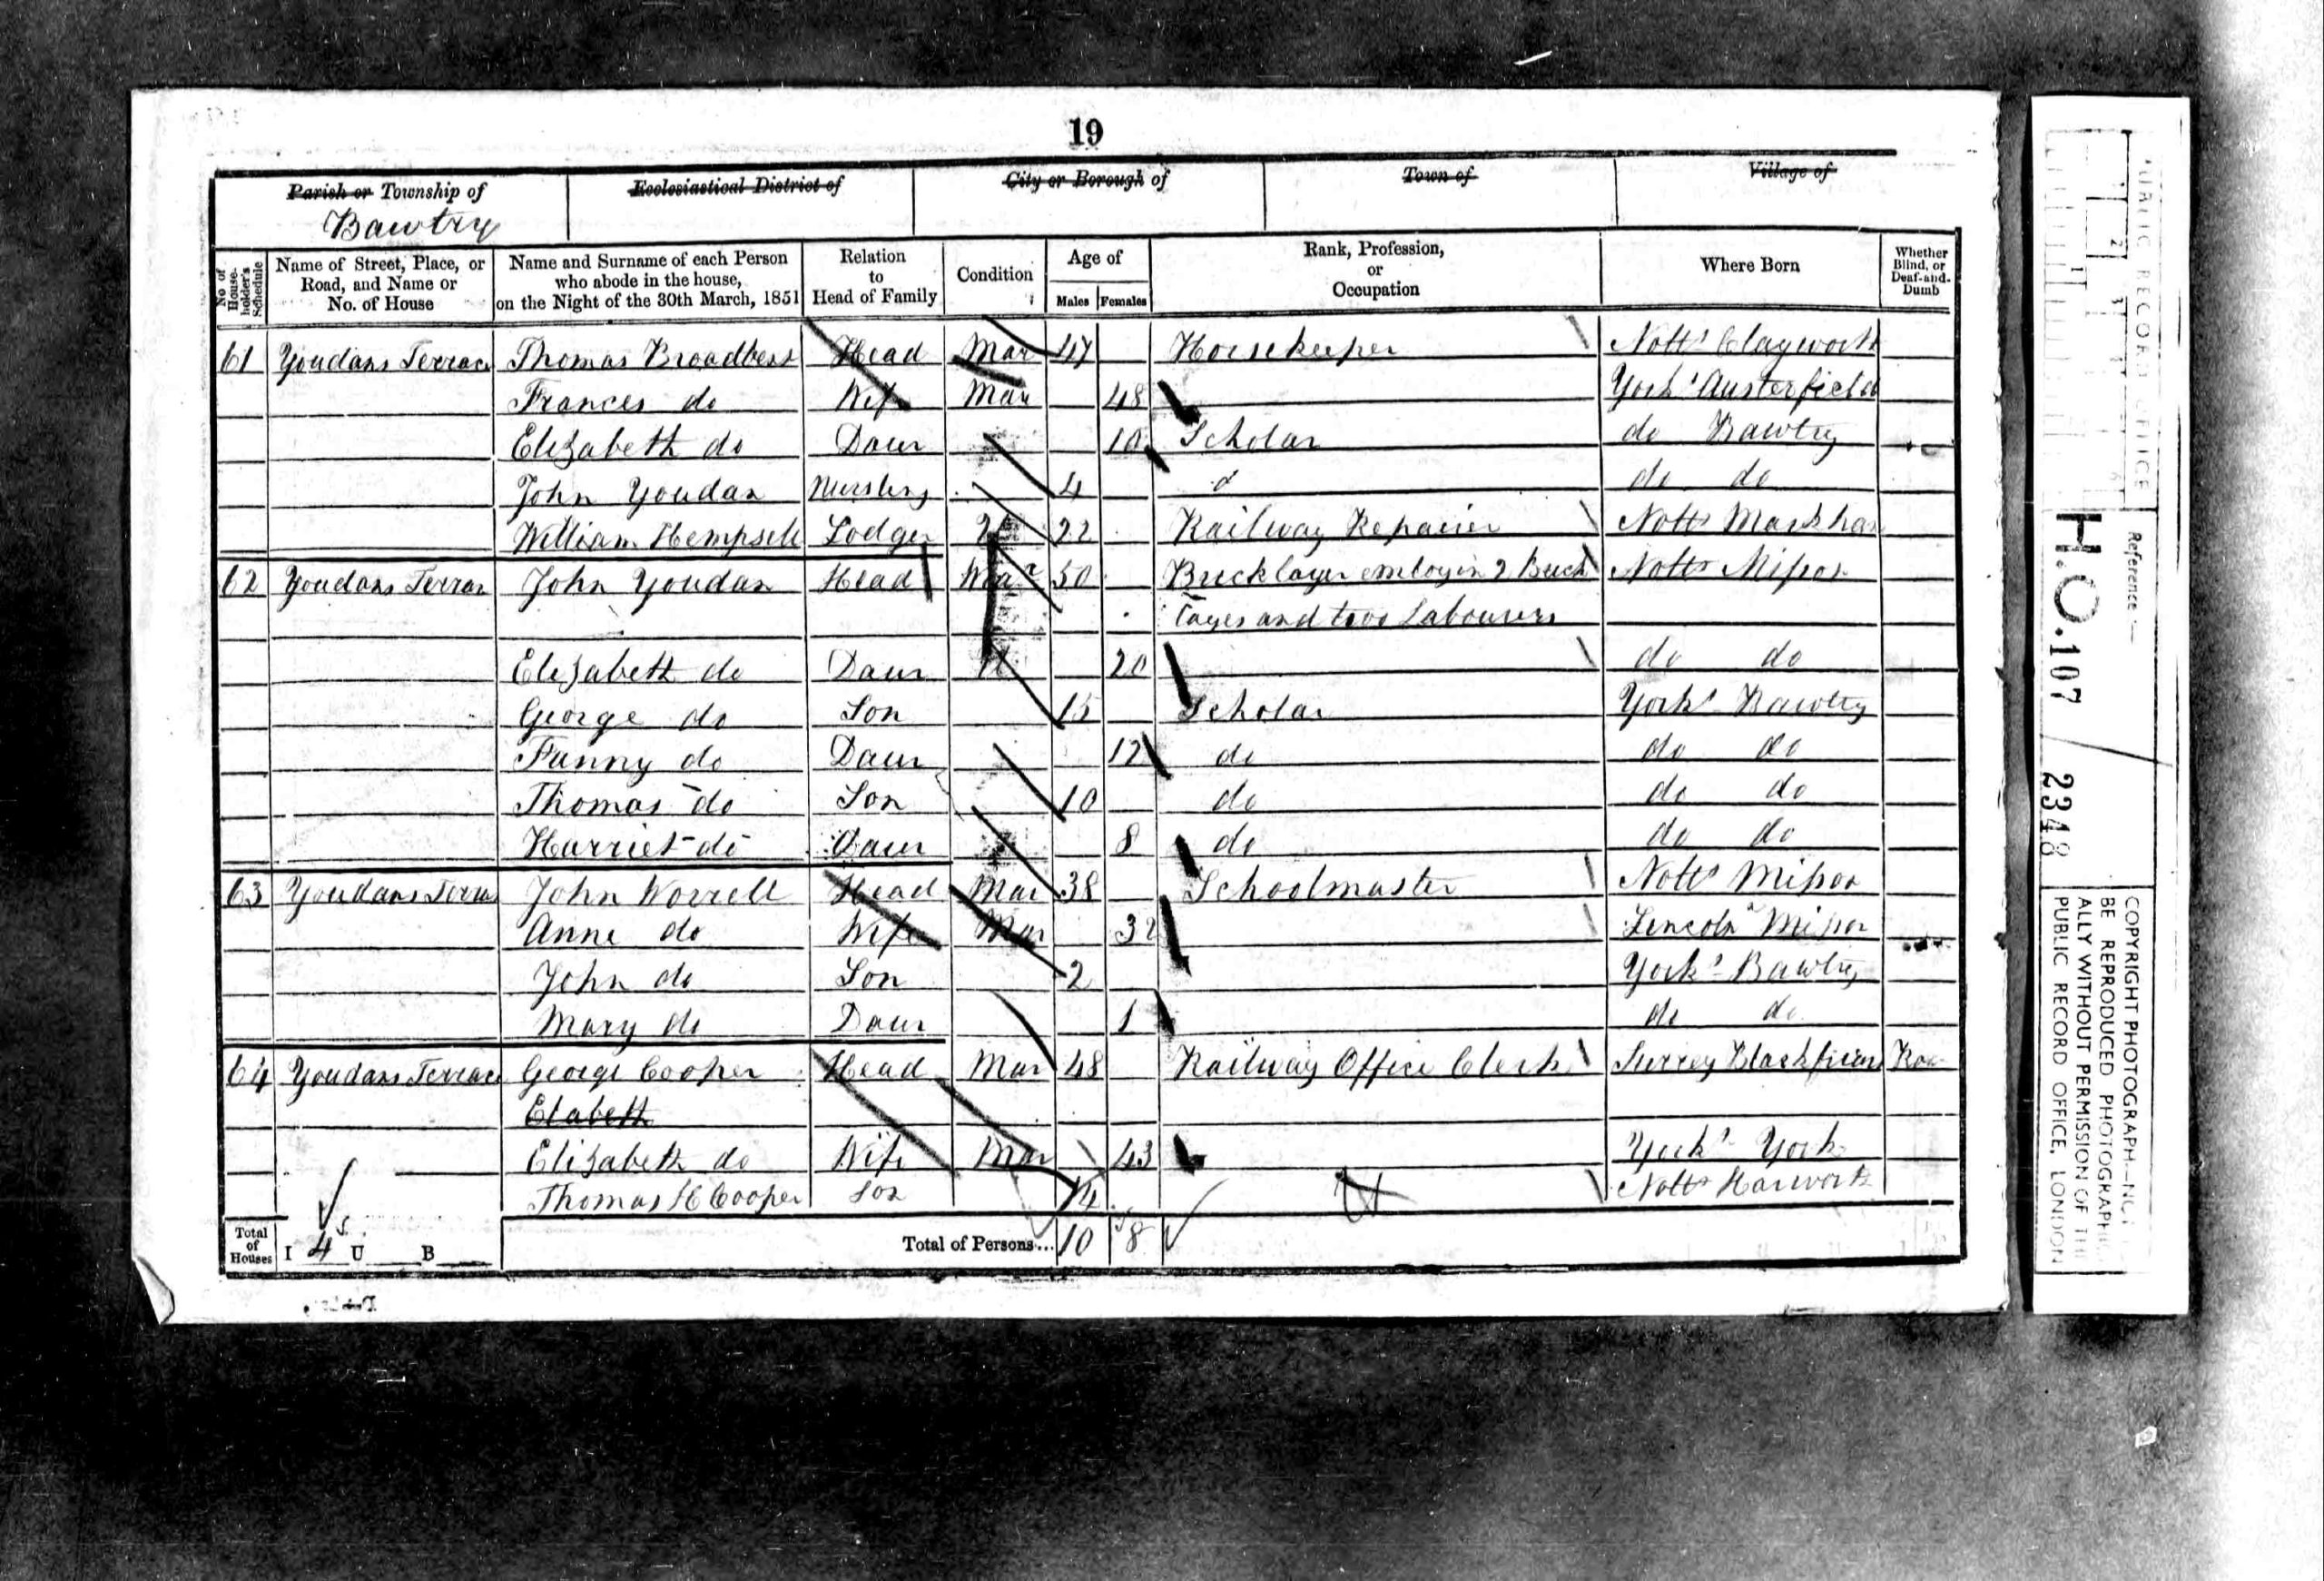 19
Parish or Township of Ecclesiastical District of City or Borough of Town of Village of
Bawtry
No. of House-holder's Schedule Name of Street, Place, or Road, and Name or No. of House Name and Surname of each Person who abode in the house, on the Night of the 30th March, 1851 Relation to Head of Family Condition Age of Males Females Rank, Profession, or Occupation Where Born Whether Blind, or Deaf-and-Dumb
61 Youdans Terrace Thomas Broadbent Head Mar 47 Horsekeeper Notts Clayworth
Frances do Wife Mar 48 Yorks Austerfield
Elizabeth do Daur 10 Scholar do Bawtry
John Youdan Nursling 4 do do
William Hempsell Lodger 22 Railway Repairer Notts Markham
62 Youdans Terrac John Youdan Head 50 Bricklayer employin 2 Brick Notts Misson
layes and two Labourers
Elizabeth do Daur U 20 do do
George do Son 15 Scholar Yorks Bawtry
Fanny do Daur 12 do do do
Thomas do Son 10 do do do
Harriet do Daur 8 do do do
63 Youdans Terrac John Worrell Head Mar 38 Schoolmaster Notts Misson
Anne do Wife Mar 32 Lincoln Misson
John do Son 2 Yorks Bawtry
Mary do Daur 1 do do
64 Youdans Terrace George Cooper Head Mar 48 Railway Office Clerk Surrey Blackfriars Roa
Elabeth
Elizabeth do Wife Mar 43 Yorks York
Thomas H Cooper Son 14 Notts Harworth
Total of Houses I 4 U B Total of Persons... 10 8
PUBLIC RECORD OFFICE
Reference :—
H.O. 107 / 2348
COPYRIGHT PHOTOGRAPH—NOT
BE REPRODUCED PHOTOGRAPHIC
ALLY WITHOUT PERMISSION OF THE
PUBLIC RECORD OFFICE, LONDON